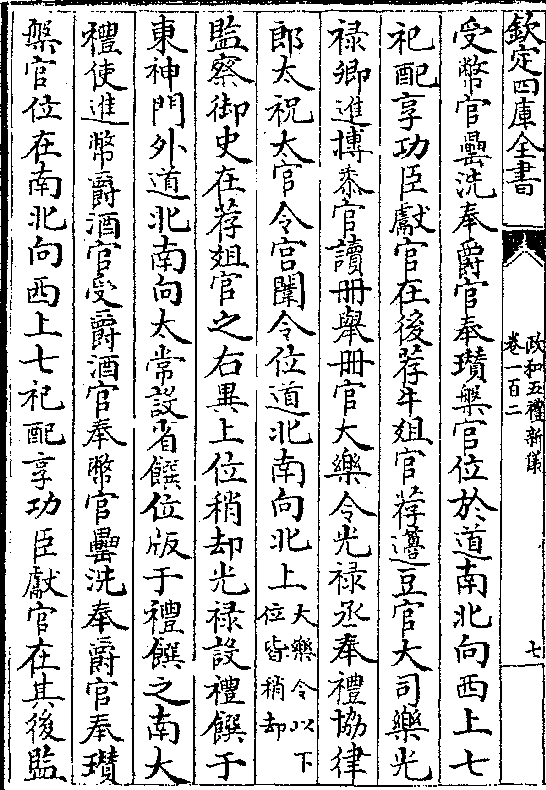 欽定四庫全書
政和五禮新儀
卷一百二
七
受幣官罍洗奉爵官奉瓚槃官位於道南北向西上七
祀配享功臣獻官在後荐牛俎官荐籩豆官大司樂光
禄卿進摶黍官讀冊舉冊官大樂令光禄丞奉禮協律
郎太祝太官令宫闈令位道北南向北上大樂令以下位皆稍却
監察御史在荐俎官之右異上位稍却光禄設禮饌于
東神門外道北南向太常設省饌位版于禮饌之南大
禮使進幣爵酒官受爵酒官奉幣官罍洗奉爵官奉瓚
槃官位在南北向西上七祀配享功臣獻官在其後監